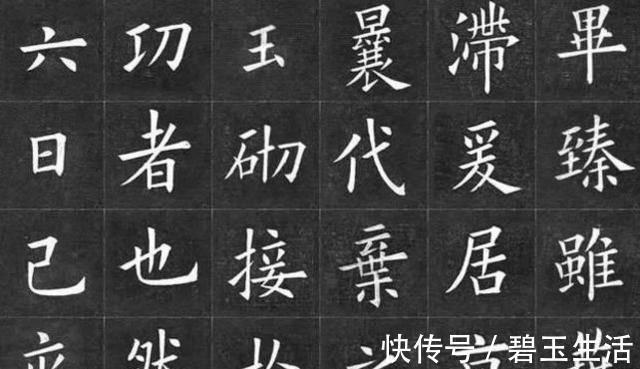 六 㓛 玉 曩 滯 畢
日 者 砌 代 爰 臻
己 也 接 棄 居 雖
快传号 / 碧玉生活